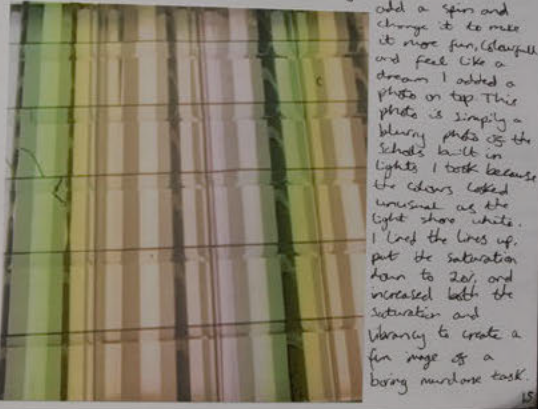 add a spin and
change it to make
it more fun, Colourfull
and feel like a
dream I added a
photo on top. This
photo is simply a
blurry photo of the
schools built in
lights I took because
the colours looked
unusual as the
light shone white.
I lined the lines up,
put the saturation
down to 20%, and
increased both the
saturation and
vibrancy to create a
fun image of a
boring mundane task.
15